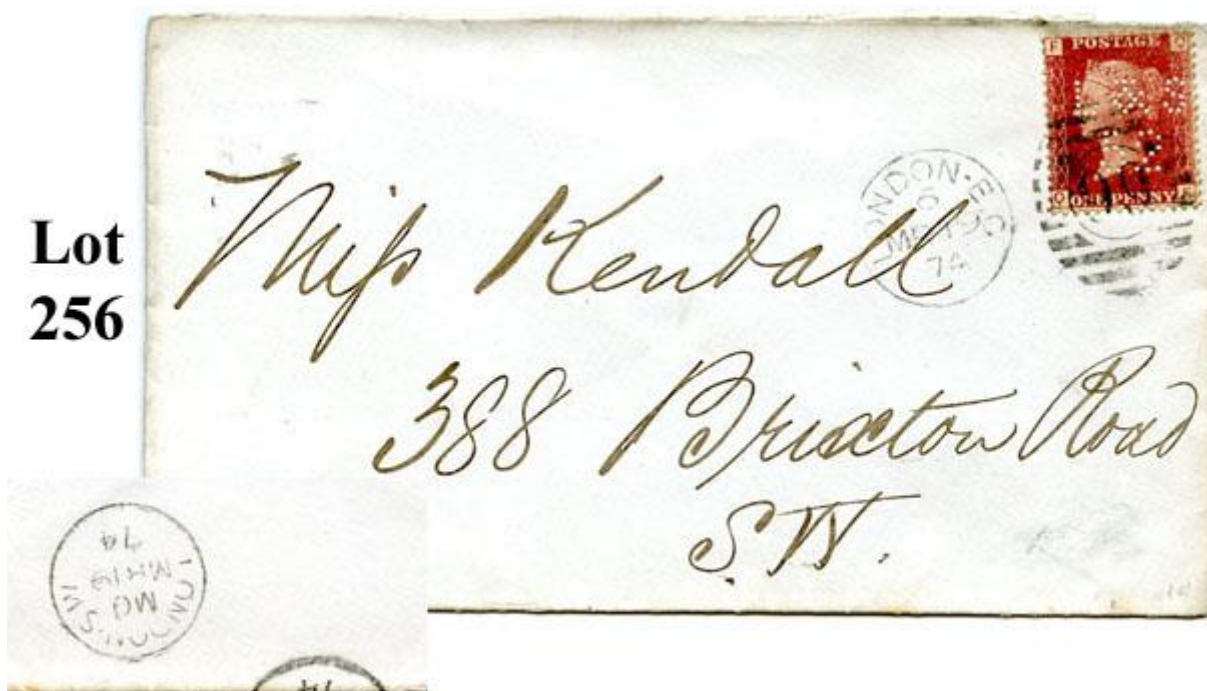 Lot
256
F POSTAGE Q
Q ONE PENNY F
LONDON·E.C
6
MR19
74
Miss Kendall
388 Brixton Road
S.W.
LONDON·S.W
MR19
74